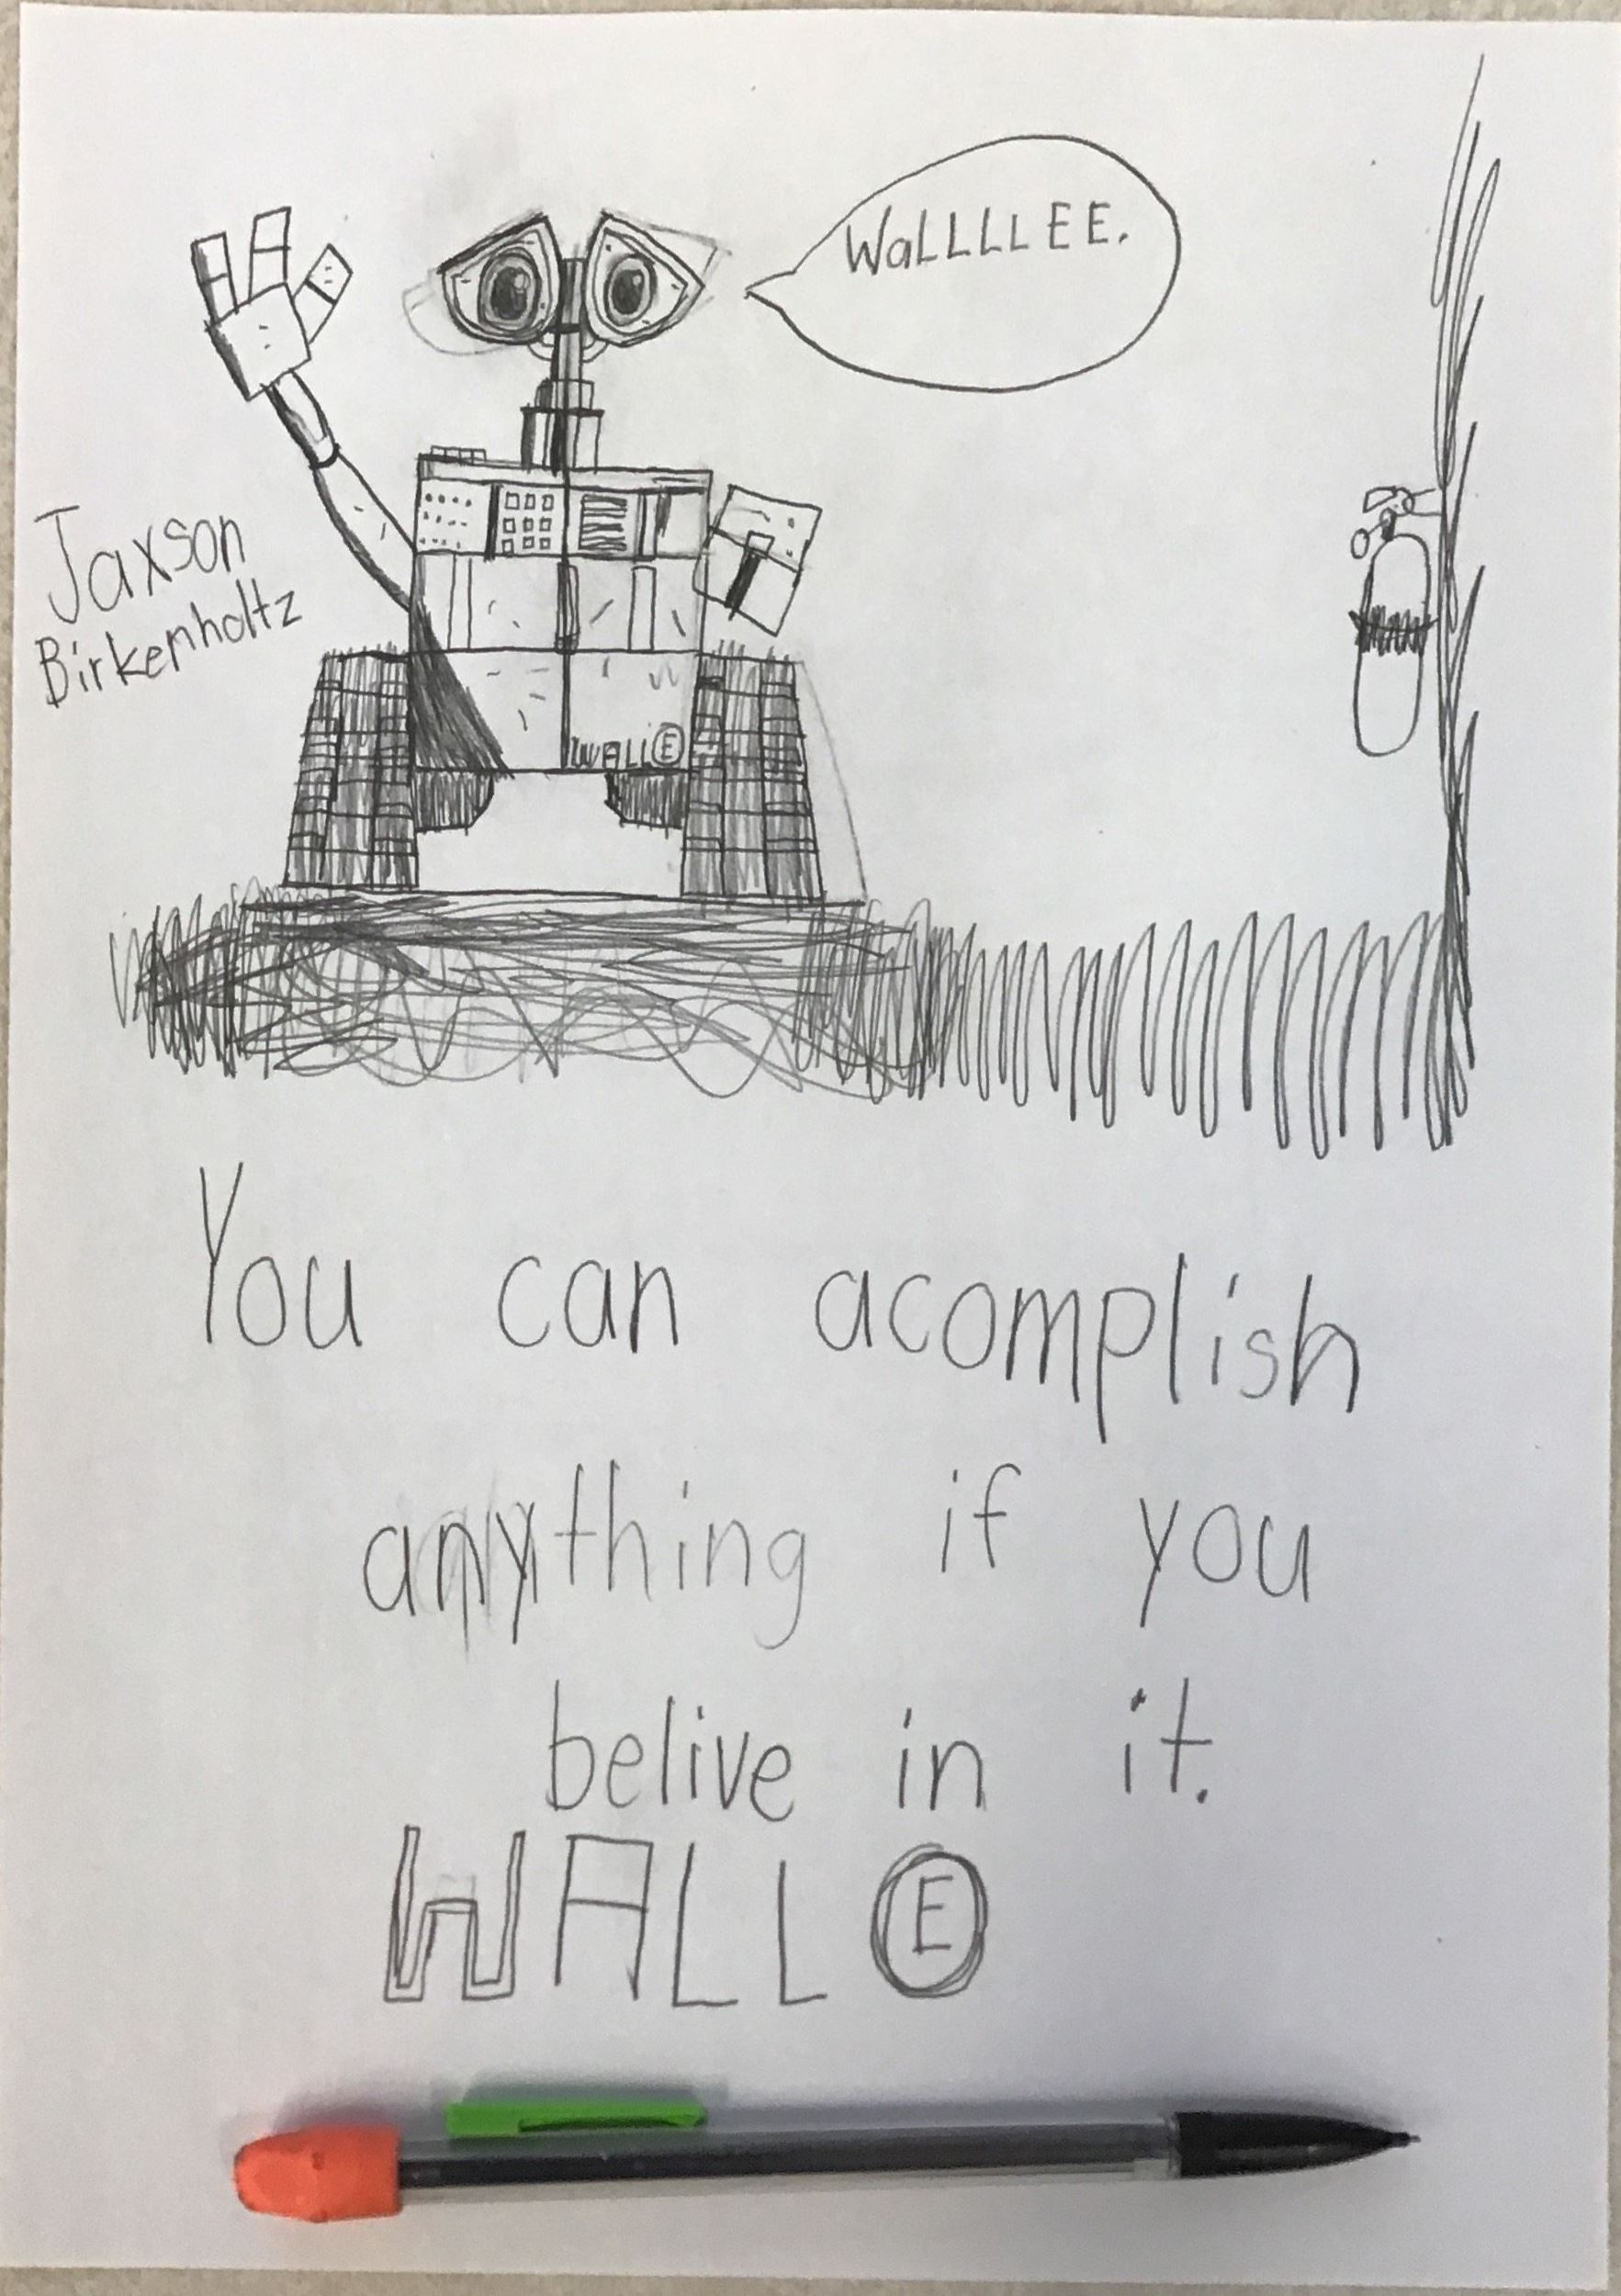 WaLLLLEE.
Jaxson
Birkenholtz
WALLⒺ
You can acomplish
anything if you
belive in it.
WALLⒺ